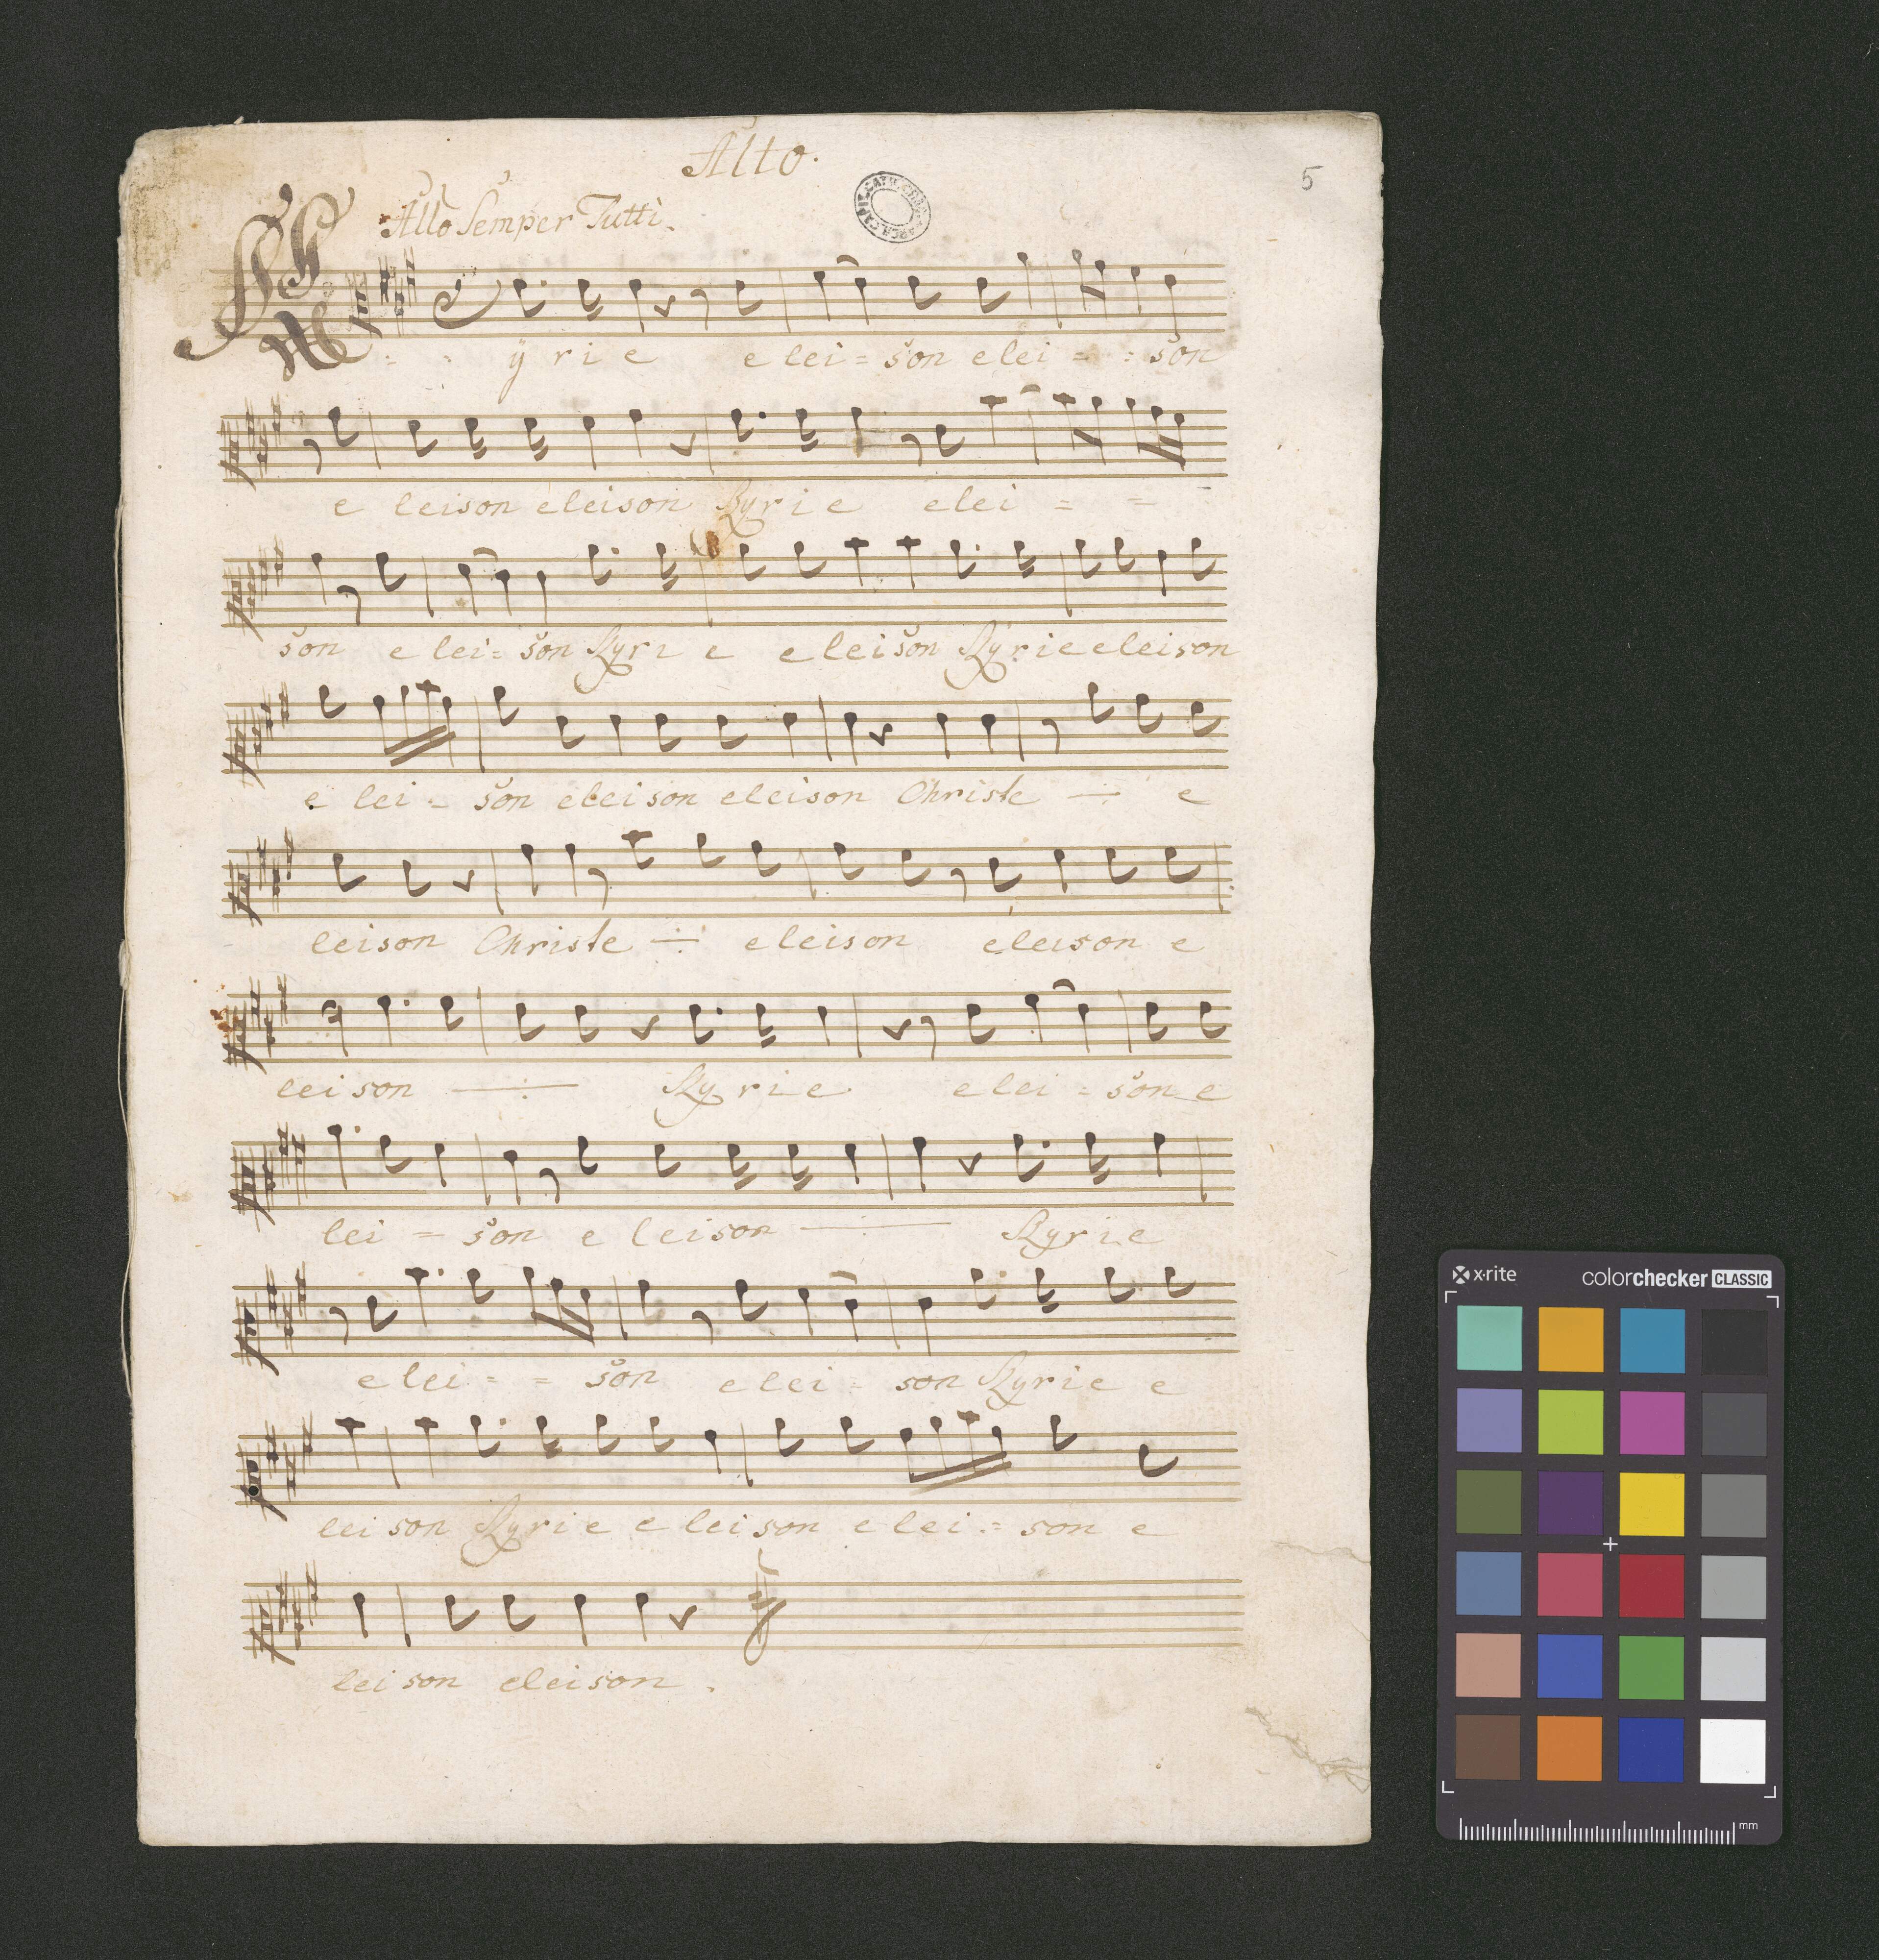 Alto.
5
Allo Semper Tutti.
Kÿrie elei = son elei = = son
e leison eleison Kyrie elei = = -
son e lei = son Kyri e eleison Kyrie eleison
e lei = son eleison eleison Christe —:— e
leison Christe —:— eleison eleison e
leison —:— Kyrie elei = son e
lei = son e leison —:— Kyrie
elei = = son elei = son Kyrie e
leison Kyrie e leison elei = son e
leison eleison.
x·rite colorchecker CLASSIC
mm